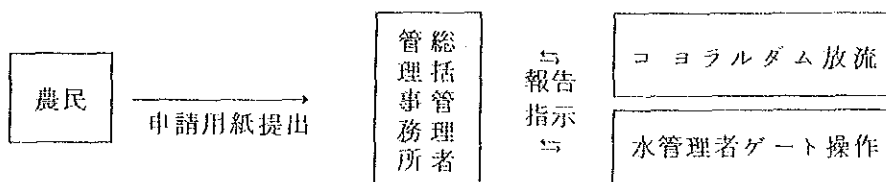 農民
申請用紙提出
総括管理者
管理事務所
⇆
報告
指示
⇆
コヨラルダム放流
水管理者ゲート操作